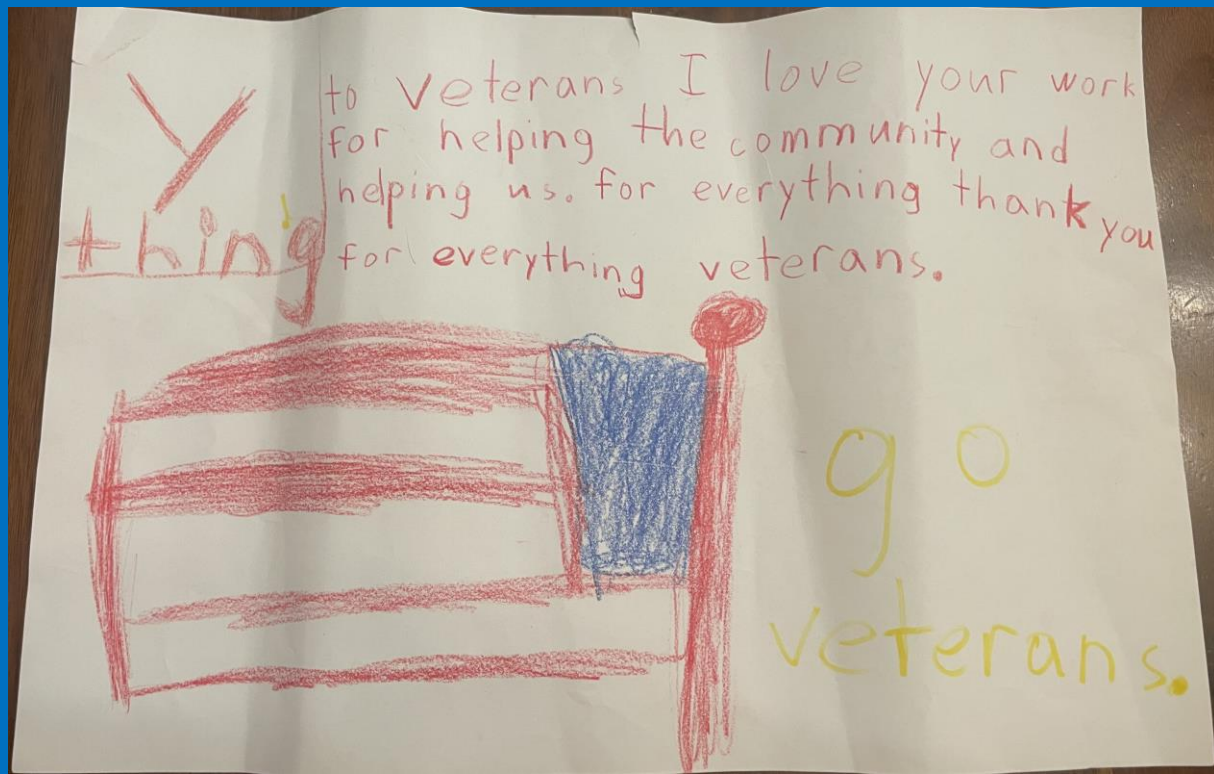 Y
thing
to veterans I love your work
for helping the community and
helping us. for everything thank you
for everything veterans.
go
veterans.